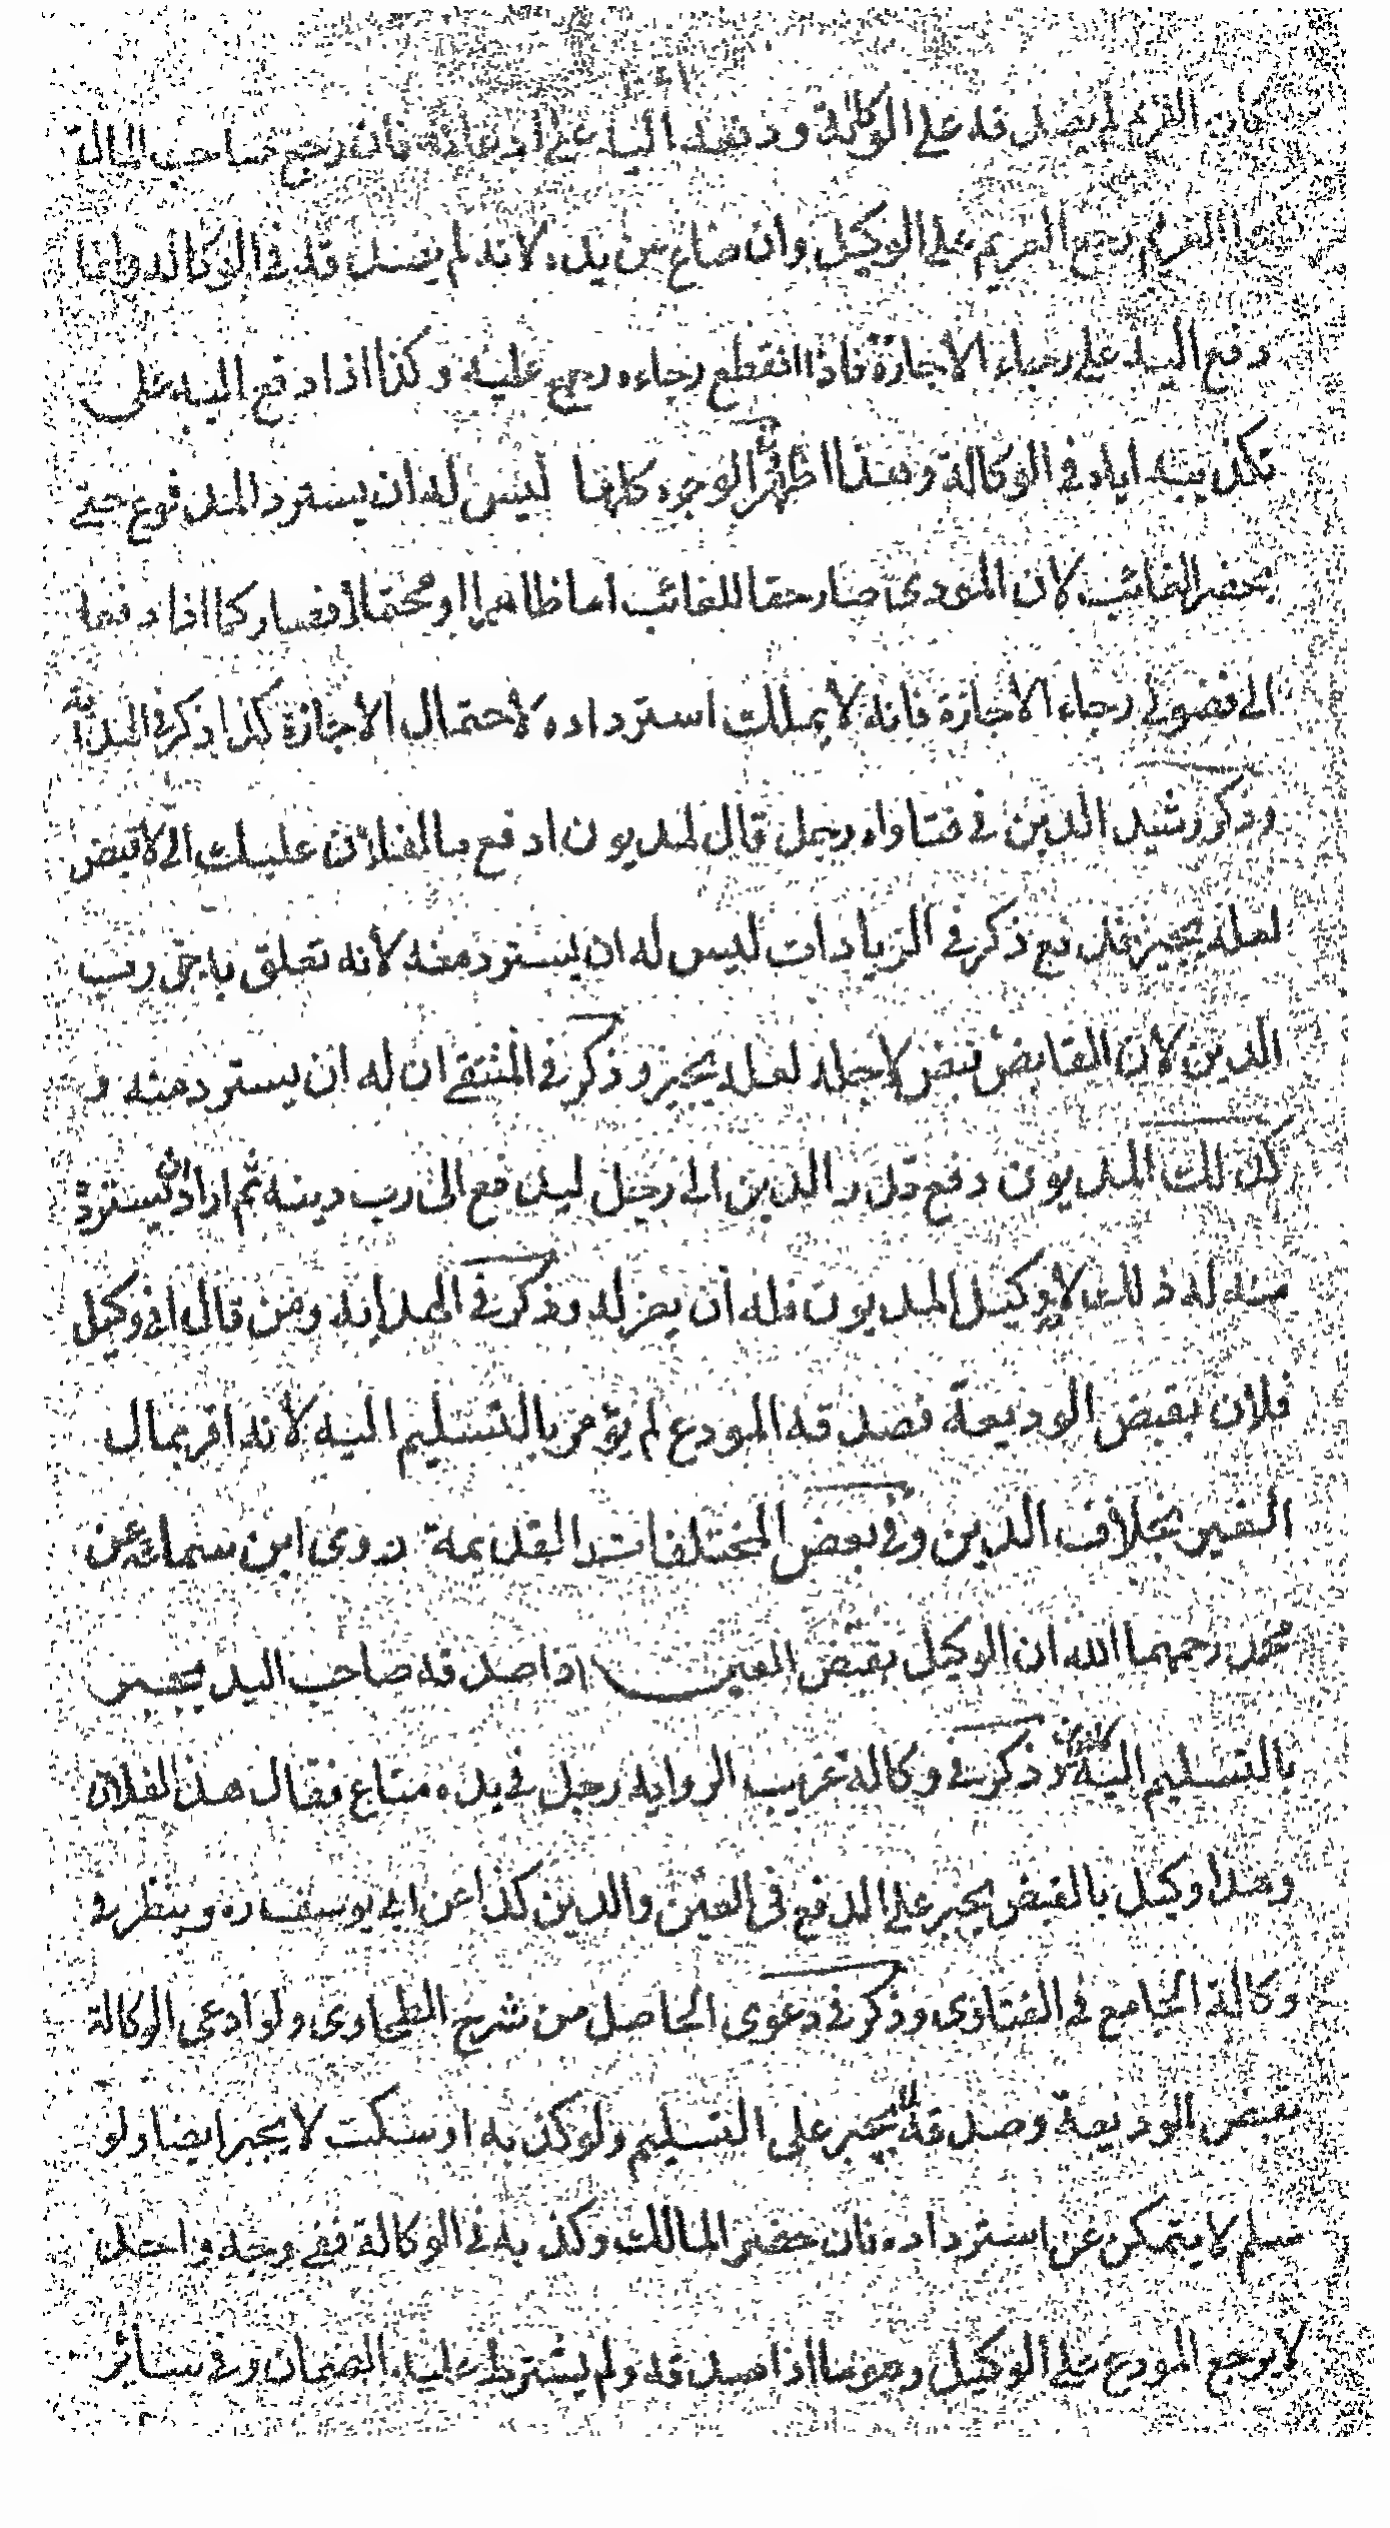 كان الغريم لم يصدقه على الوكالة ودفعه اليه على ادعائه فان رجع صاحب المال
على الغريم رجع الغريم على الوكيل وان ضاع من يده لانه لم يصدقه في الوكالة وانما
دفع اليه على رجاء الاجازة فاذا انقطع رجاءه رجع عليه وكذا اذا دفع اليه على
تكذيبه اياه في الوكالة وهذا اظهر الوجوه كلها ليس له ان يسترد المدفوع حتى
يحضر الغائب لان المودى صار حقا للغائب اما ظاهرا او محتملا فصار كما اذا دفعها
الى فضولى رجاء الاجازة فانه لا يملك استرداده لاحتمال الاجازة كذا ذكر في الهداية
وذكر رشيد الدين في فتاواه رجل قال لمديون ادفع ما لفلان عليك الى لاقبض
لعله يجيز فدفع ذكر في الزيادات ليس له ان يسترد منه لانه تعلق به حق رب
الدين لان القابض قبض لاجله لعله يجيز وذكر في المنتقى ان له ان يسترد منه و
كذلك المديون دفع قدر الدين الى رجل ليدفع الى رب دينه ثم اراد ان يسترد
منه له ذلك لانه وكيل المديون فله ان يعزله وذكر في الهداية ومن قال اني وكيل
فلان بقبض الوديعة فصدقه المودع لم يؤمر بالتسليم اليه لانه اقر بمال
الغير بخلاف الدين وفي بعض المختلفات القديمة روى ابن سماعة عن
محمد رحمهما الله ان الوكيل بقبض العين اذا صدقه صاحب اليد يجبر
بالتسليم اليه وذكر في وكالة غريب الرواية رجل في يده متاع فقال هذا لفلان
وهذا وكيل بالقبض يجبر على الدفع في العين والدين كذا عن ابي يوسف ره وينظر في
وكالة الجامع في الفتاوى وذكر في دعوى الحاصل من شرح الطحاوى ولو ادعى الوكالة
بقبض الوديعة وصدقه لا يجبر على التسليم ولو كذبه او سكت لا يجبر ايضا ولو
سلم لا يتمكن عن استرداده فان حضر المالك وكذبه في الوكالة ففي وجه واحد
لا يرجع المودع على الوكيل وهو ما اذا صدقه ولم يشترط عليه الضمان وفي سائر